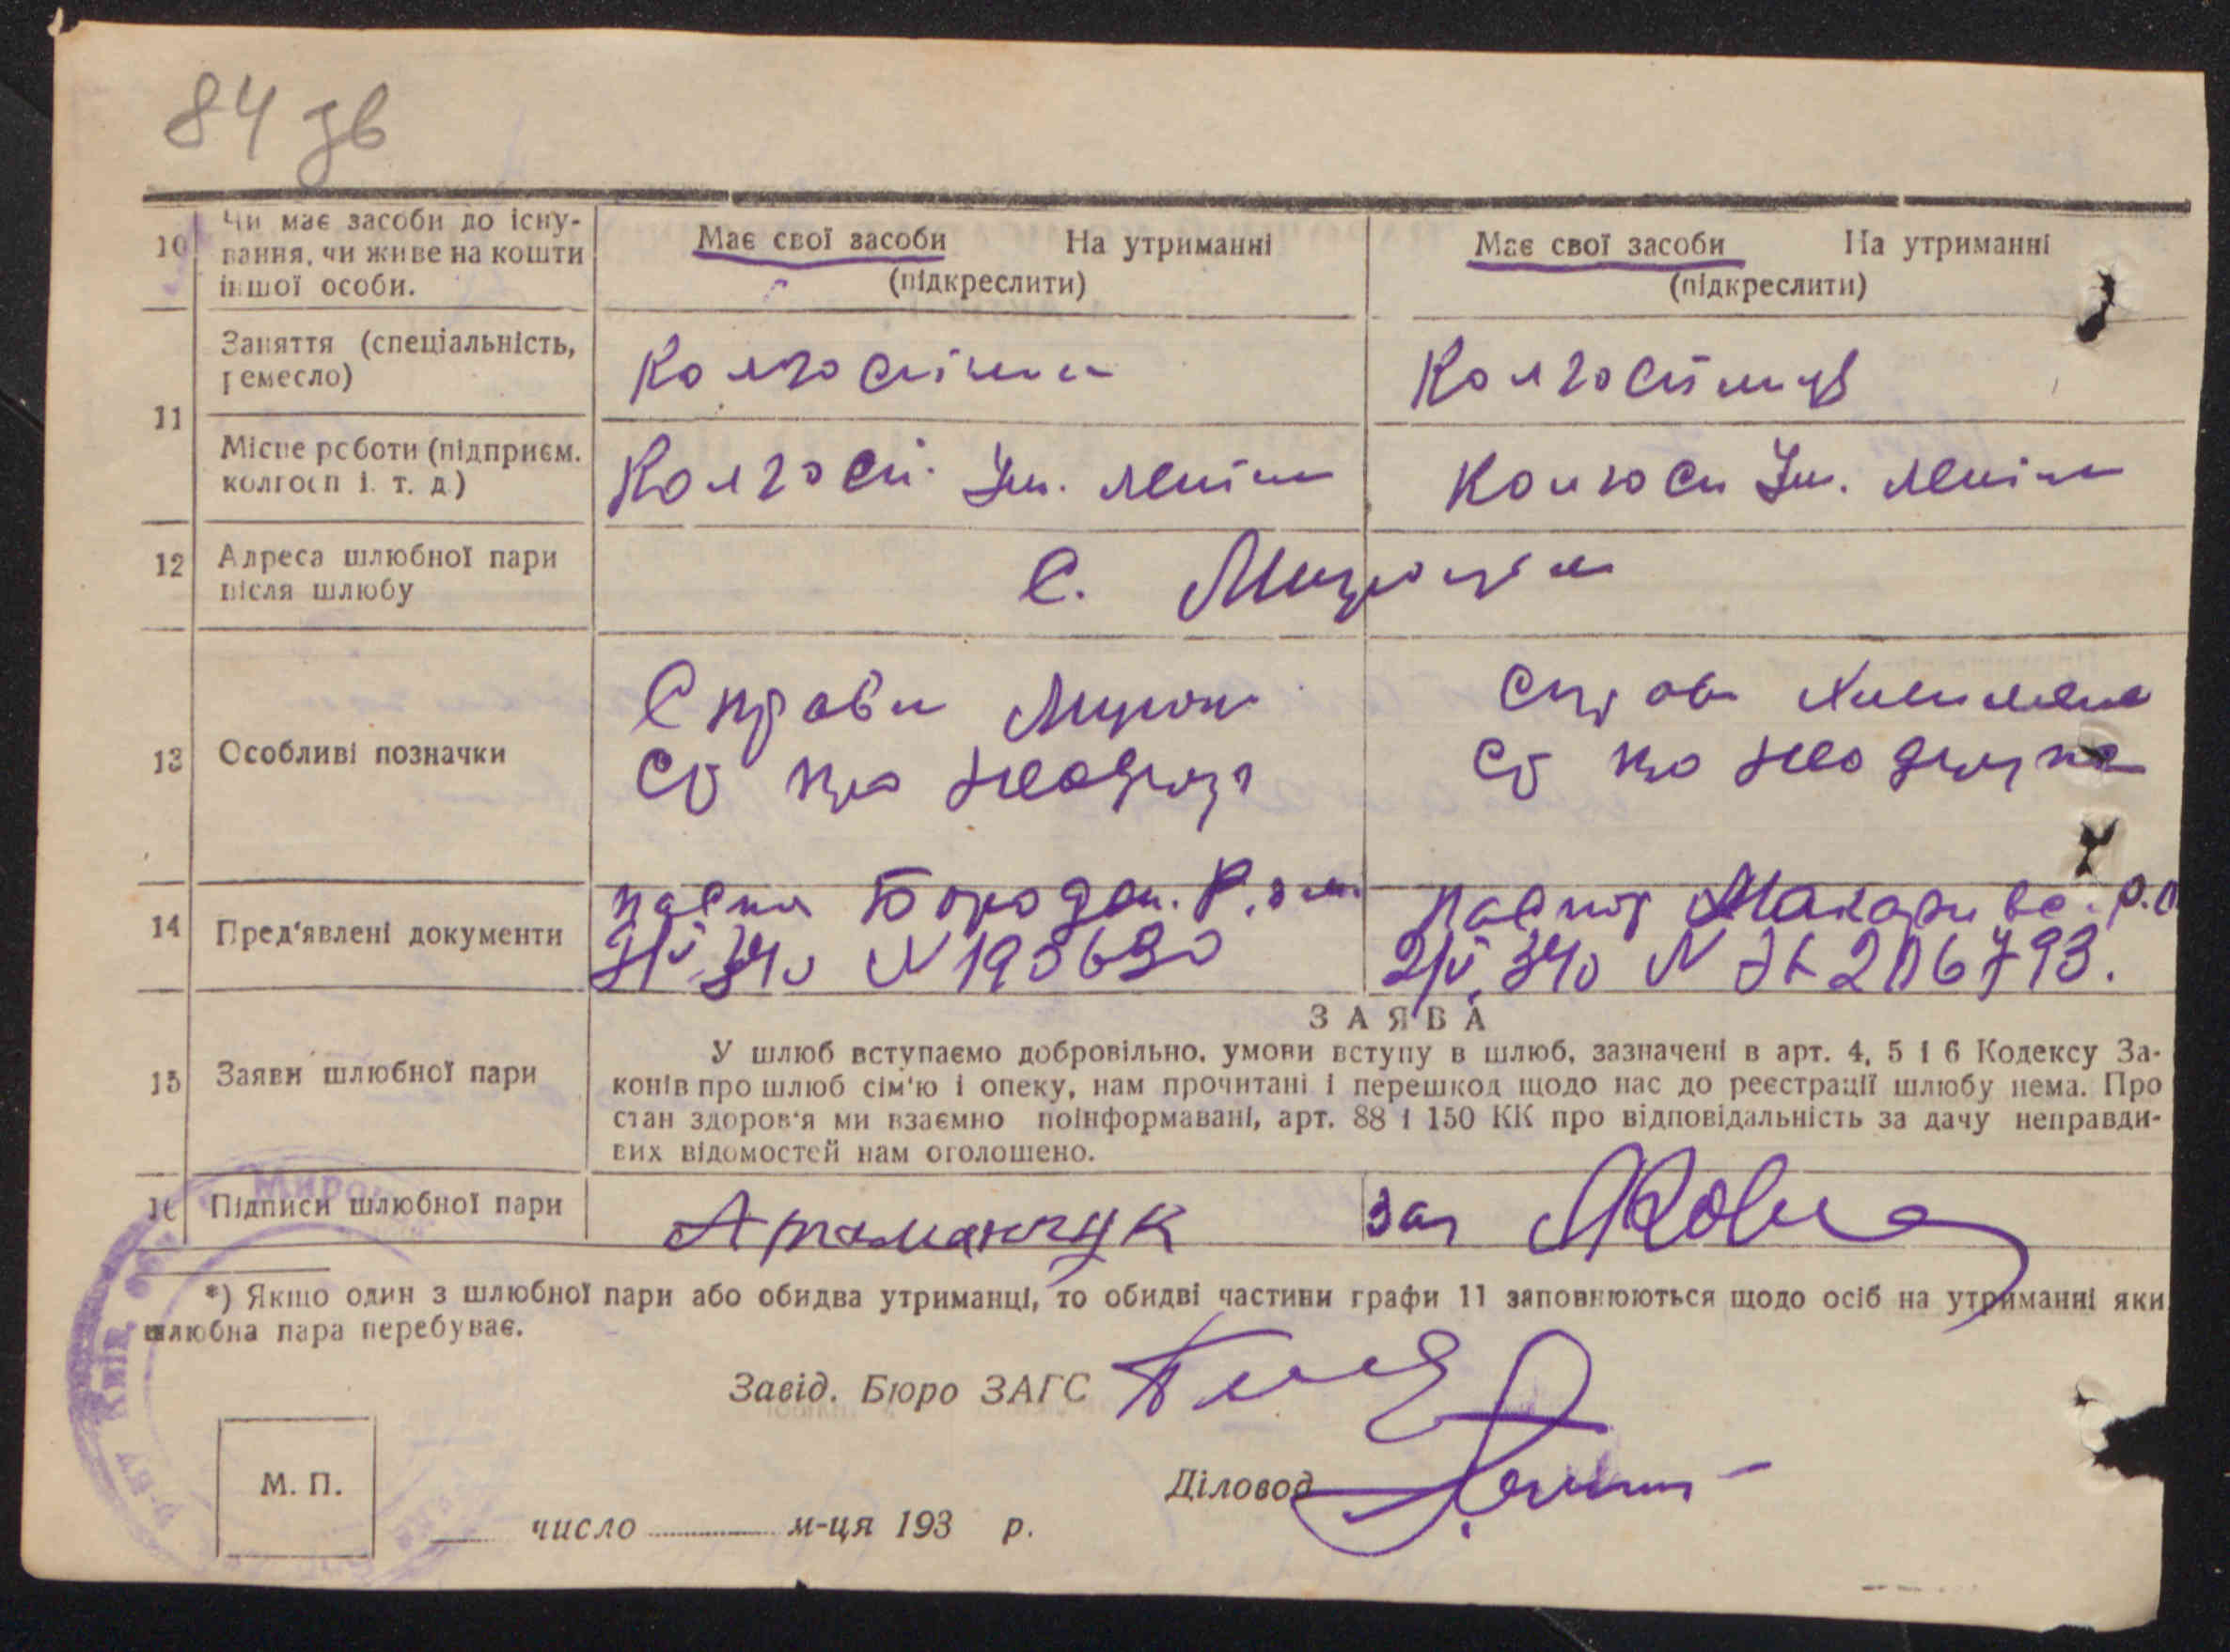 84 зв
10 Чи має засоби до існу-
вання, чи живе на кошти
іншої особи.
Має свої засоби На утриманні
(підкреслити)
Має свої засоби На утриманні
(підкреслити)
11
Заняття (спеціальність,
ремесло)
Колгоспник
Колгоспниця
Місце роботи (підприєм.
колгосп і. т. д.)
Колгосп. Ім. Леніна
Колгосп Ім. Леніна
12 Адреса шлюбної пари
після шлюбу
с. Мироцьк
13 Особливі позначки
Справк Мироц
СР про
Справ
СР про
14 Пред'явлені документи
паспо Бородян. Р.
340 N 195690
Паспор Макарівс. р.
340 N 206793.
15 Заяви шлюбної пари
ЗАЯВА
У шлюб вступаємо добровільно, умови вступу в шлюб, зазначені в арт. 4, 5 і 6 Кодексу За-
конів про шлюб сім'ю і опеку, нам прочитані і перешкод щодо нас до реєстрації шлюбу нема. Про
стан здоров'я ми взаємно поінформавані, арт. 88 і 150 КК про відповідальність за дачу неправди-
вих відомостей нам оголошено.
16 Підписи шлюбної пари
Атаманчук
за
*) Якщо один з шлюбної пари або обидва утриманці, то обидві частини графи 11 заповнюються щодо осіб на утриманні яки
шлюбна пара перебуває.
Завід. Бюро ЗАГС
Діловод
М. П.
число м-ця 193 р.